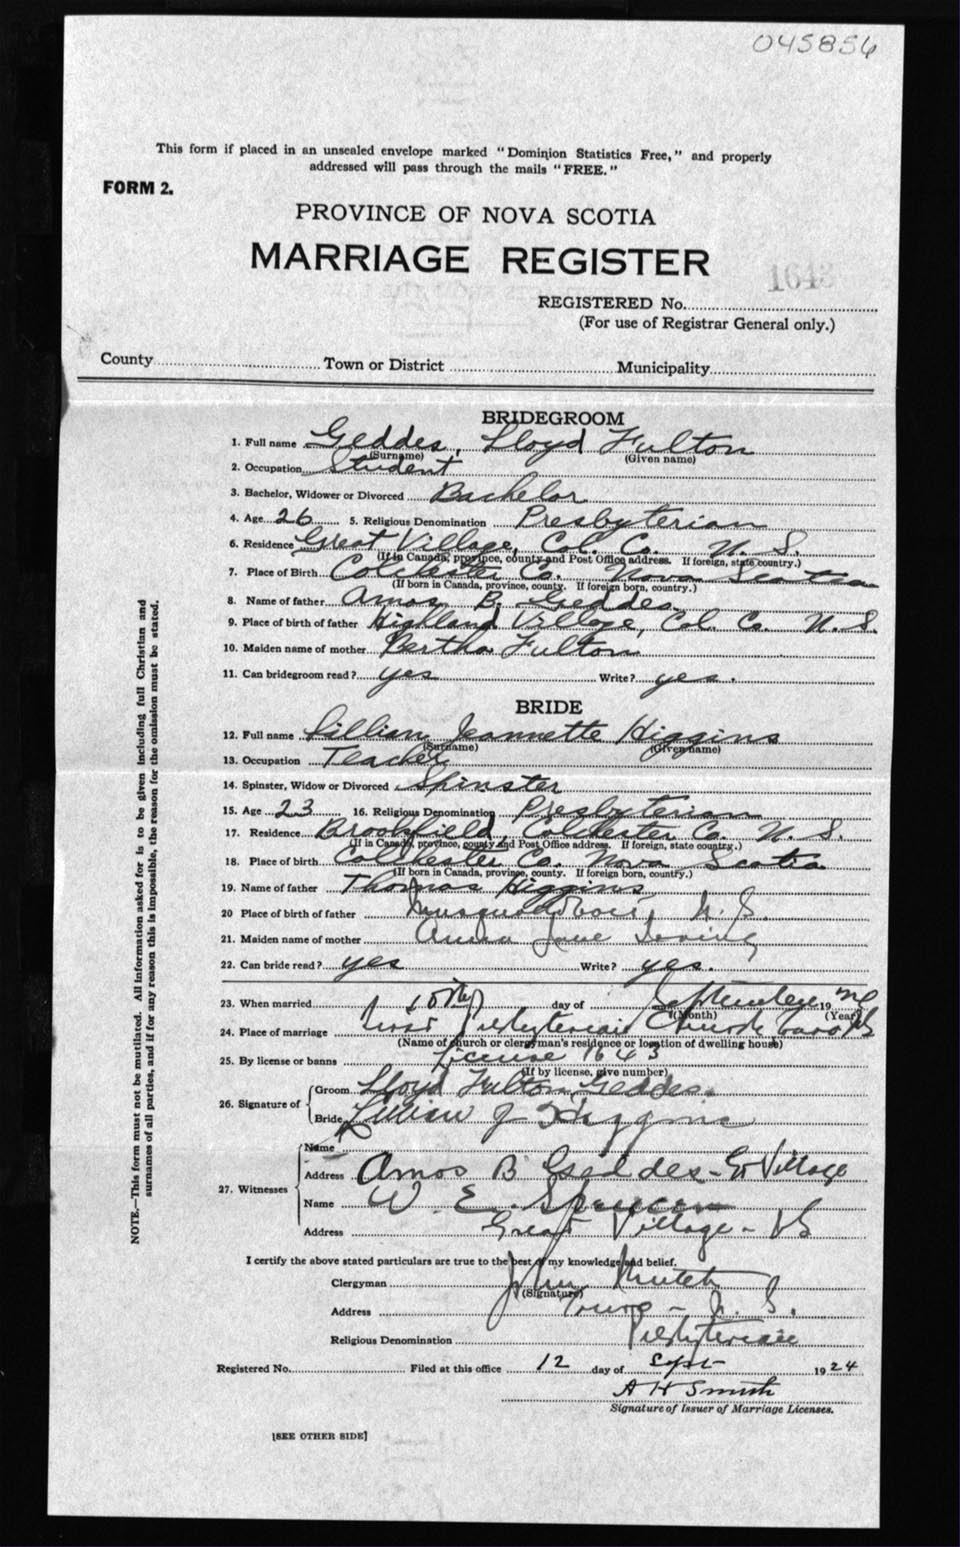 045856
This form if placed in an unsealed envelope marked "Dominion Statistics Free," and properly
addressed will pass through the mails "FREE."
FORM 2.
PROVINCE OF NOVA SCOTIA
MARRIAGE REGISTER
1643
REGISTERED No.
(For use of Registrar General only.)
County Town or District Municipality
BRIDEGROOM
1. Full name Geddes, Lloyd Fulton
(Surname) (Given name)
2. Occupation Student
3. Bachelor, Widower or Divorced Bachelor
4. Age 26 5. Religious Denomination Presbyterian
6. Residence Great Village, Col. Co. N. S.
(If in Canada, province, county and Post Office address. If foreign, state country.)
7. Place of Birth Colchester Co. Nova Scotia
(If born in Canada, province, county. If foreign born, country.)
8. Name of father Amos B. Geddes
9. Place of birth of father Highland Village, Col. Co. N. S.
10. Maiden name of mother Bertha Fulton
11. Can bridegroom read? yes Write? yes.
BRIDE
12. Full name Lillian Jeannette Higgins
(Surname) (Given name)
13. Occupation Teacher
14. Spinster, Widow or Divorced Spinster
15. Age 23 16. Religious Denomination Presbyterian
17. Residence Brookfield, Colchester Co. N. S.
(If in Canada, province, county and Post Office address. If foreign, state country.)
18. Place of birth Colchester Co. Nova Scotia
(If born in Canada, province, county. If foreign born, country.)
19. Name of father Thomas Higgins
20 Place of birth of father Musquodoboit, N. S.
21. Maiden name of mother Anna Jane Irving
22. Can bride read? yes Write? yes.
23. When married 10th day of September 19
(Month) (Year)
24. Place of marriage First Presbyterian Church Truro NS
(Name of church or clergyman's residence or location of dwelling house)
25. By license or banns License 1643
(If by license, give number)
26. Signature of
Groom Lloyd Fulton Geddes.
Bride Lillian J Higgins
27. Witnesses
Name
Address Amos B Geddes - Gt Village
Name W. E. Spencer
Address Great Village - NS
I certify the above stated particulars are true to the best of my knowledge and belief.
Clergyman John Mutch
(Signature)
Address Truro - N. S.
Religious Denomination Presbyterian
Registered No. Filed at this office 12 day of Sept 1924
A H Smith
Signature of Issuer of Marriage Licenses.
[SEE OTHER SIDE]
NOTE.—This form must not be mutilated. All information asked for is to be given including full Christian and
surnames of all parties, and if for any reason this is impossible, the reason for the omission must be stated.